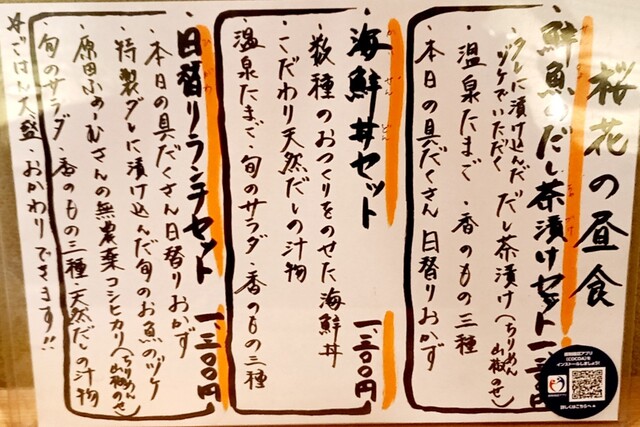 桜花の昼食
鮮魚のだし茶漬けセット一、三
タレに漬け込んだ だし茶漬け(ちりめん山椒のせ)
ヅケでいただく
・温泉たまご・香のもの三種
・本日の具だくさん日替りおかず
海鮮丼セット 一、三〇〇円
かいせんどん
・数種のおつくりをのせた海鮮丼
・こだわり天然だしの汁物
・温泉たまご・旬のサラダ・香のもの三種
日替りランチセット 一、三〇〇円
・本日の具だくさん日替りおかず
・特製ダレに漬け込んだ旬のお魚のヅケ
・原田ふぁーむさんの無農薬コシヒカリ(ちりめん山椒のせ)
・旬のサラダ・香のもの三種・天然だしの汁物
ごはん大盛・おかわりできます!!
接触確認アプリ
(COCOA)を
インストールしましょう!
詳しくはこちらへ